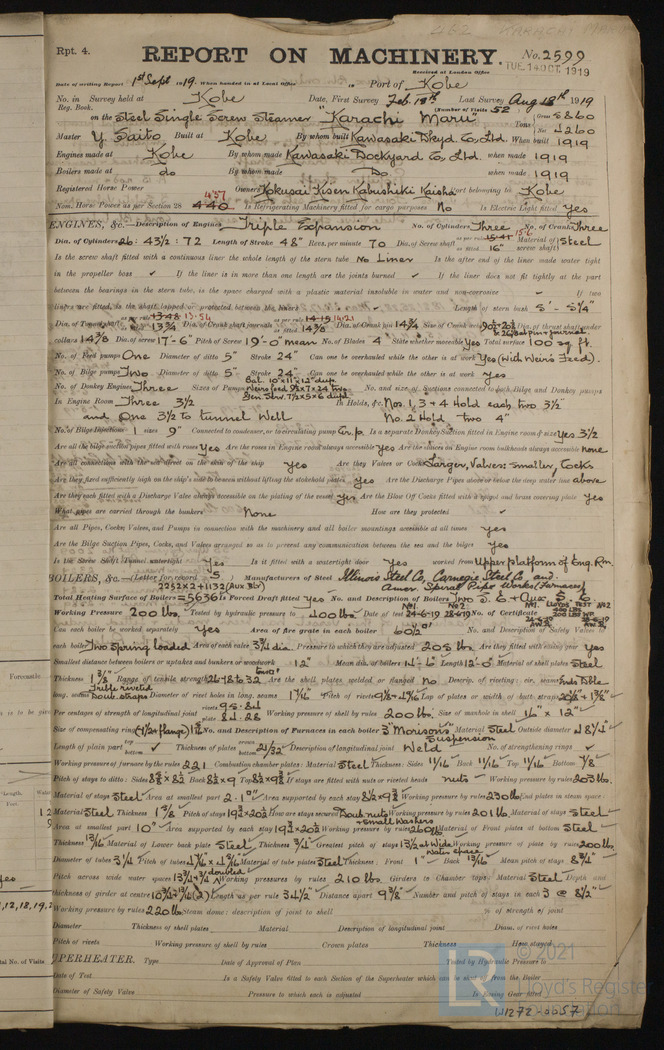 Rpt. 4.
REPORT ON MACHINERY. No. 2599
Received at London Office TUE. 14 OCT. 1919
Date of writing Report 1st Sept 1919 When handed in at Local Office Port of Kobe
No. in Survey held at Kobe Date, First Survey Feb. 19th Last Survey Aug 18th 1919
Reg. Book. (Number of Visits 52
on the Steel Single Screw Steamer "Karachi Maru" Tons Gross 5860
Net 4260
Master Y. Saito Built at Kobe By whom built Kawasaki Dkyd. Co. Ltd. When built 1919
Engines made at Kobe By whom made Kawasaki Dockyard Co. Ltd. when made 1919
Boilers made at do By whom made Do. when made 1919
Registered Horse Power Owners Kokusai Kisen Kabushiki Kaisha Port belonging to Kobe
Nom. Horse Power as per Section 28 440 457 Is Refrigerating Machinery fitted for cargo purposes No Is Electric Light fitted Yes
ENGINES, &c.—Description of Engines Triple Expansion No. of Cylinders Three No. of Cranks Three
Dia. of Cylinders 26 : 43 1/2 : 72 Length of Stroke 48" Revs. per minute 70 Dia. of Screw shaft as per rule 15.41 15.6 as fitted 16" Material of screw shaft Steel
Is the screw shaft fitted with a continuous liner the whole length of the stern tube No Liner Is the after end of the liner made water tight
in the propeller boss ✓ If the liner is in more than one length are the joints burned ✓ If the liner does not fit tightly at the part
between the bearings in the stern tube, is the space charged with a plastic material insoluble in water and non-corrosive ✓ If two
liners are fitted, is the shaft lapped or protected between the liners ✓ Length of stern bush 5'-5 1/4"
Dia. of Tunnel shaft as per rule 13.48 13.54 as fitted 13 3/4 Dia. of Crank shaft journals as per rule 14.15 14.21 as fitted 14 3/8 Dia. of Crank pin 14 3/4 Size of Crank webs Dia. of thrust shaft under
collars 14 3/8 Dia. of screw 17'-6" Pitch of Screw 19'-0" mean No. of Blades 4 State whether moveable Yes Total surface 100 sq. ft.
No. of Feed pumps One Diameter of ditto 5" Stroke 24" Can one be overhauled while the other is at work Yes (with Weir's Feed).
No. of Bilge pumps Two Diameter of ditto 5" Stroke 24" Can one be overhauled while the other is at work Yes
No. of Donkey Engines Three Sizes of Pumps Bal. 10"x11"x12" dup. Weirs feed 9 1/2 x 7 x 24 two Gen. Serv. 7 1/2 x 5 x 6 dup. No. and size of Suctions connected to both Bilge and Donkey pumps
In Engine Room Three 3 1/2 In Holds, &c. Nos. 1, 3 & 4 Hold each two 3 1/2"
and One 3 1/2 to tunnel Well No. 2 Hold two 4"
No. of Bilge Injections 1 sizes 9" Connected to condenser, or to circulating pump Cir. p. Is a separate Donkey Suction fitted in Engine room & size Yes 3 1/2
Are all the bilge suction pipes fitted with roses Yes Are the roses in Engine room always accessible Yes Are the sluices on Engine room bulkheads always accessible none
Are all connections with the sea direct on the skin of the ship Yes Are they Valves or Cocks Larger, Valves: smaller, Cocks
Are they fixed sufficiently high on the ship's side to be seen without lifting the stokehold plates Yes Are the Discharge Pipes above or below the deep water line above
Are they each fitted with a Discharge Valve always accessible on the plating of the vessel Yes Are the Blow Off Cocks fitted with a spigot and brass covering plate Yes
What pipes are carried through the bunkers None How are they protected ✓
Are all Pipes, Cocks, Valves, and Pumps in connection with the machinery and all boiler mountings accessible at all times Yes
Are the Bilge Suction Pipes, Cocks, and Valves arranged so as to prevent any communication between the sea and the bilges Yes
Is the Screw Shaft Tunnel watertight Yes Is it fitted with a watertight door Yes worked from Upper platform of Eng. Rm.
BOILERS, &c.—(Letter for record S Manufacturers of Steel Illinois Steel Co, Carnegie Steel Co and
2252 x 2 + 1132 (Aux Blr) Amer. Spiral Pipe Works (Furnaces)
Total Heating Surface of Boilers = 5636 Is Forced Draft fitted Yes No. and Description of Boilers Two S. E. & Aux. S. E.
Working Pressure 200 lbs. Tested by hydraulic pressure to 400 lbs Date of test No1 24-6-19 No2 28-6-19 No. of Certificate
Can each boiler be worked separately Yes Area of fire grate in each boiler 60 1/2 □' No. and Description of Safety Valves to
each boiler Two Spring loaded Area of each valve 3 3/4 dia. Pressure to which they are adjusted 205 lbs Are they fitted with easing gear Yes
Smallest distance between boilers or uptakes and bunkers or woodwork 12" Mean dia. of boilers 14'-6" Length 12'-0" Material of shell plates Steel
Thickness 1 3/8 Range of tensile strength 28 to 32 Are the shell plates welded or flanged No Descrip. of riveting: cir. seams Ends Dble
long. seams Treble riveted Double straps Diameter of rivet holes in long. seams 1 7/16 Pitch of rivets Lap of plates or width of butt straps
Per centages of strength of longitudinal joint rivets plate 84.28 Working pressure of shell by rules 200 lbs. Size of manhole in shell 16" x 12"
Size of compensating ring No. and Description of Furnaces in each boiler 3 "Morison's" Suspension Material Steel Outside diameter 48 1/4"
Length of plain part top bottom ✓ Thickness of plates crown bottom 21/32 Description of longitudinal joint Weld No. of strengthening rings ✓
Working pressure of furnace by the rules 221 Combustion chamber plates: Material Steel Thickness: Sides 11/16 Back 11/16 Top 11/16 Bottom 7/8
Pitch of stays to ditto: Sides 8 3/4 x 8 1/2 Back 8 1/2 x 9 Top If stays are fitted with nuts or riveted heads nuts Working pressure by rules 203 lbs.
Material of stays Steel Area at smallest part 2.1□" Area supported by each stay Working pressure by rules 230 lbs End plates in steam space:
Material Steel Thickness 1 3/8 Pitch of stays How are stays secured Doub. nuts & small Washers Working pressure by rules 201 lbs Material of stays Steel
Area at smallest part 10□" Area supported by each stay Working pressure by rules 260 lbs Material of Front plates at bottom Steel
Thickness 13/16 Material of Lower back plate Steel Thickness 3/4 Greatest pitch of stays 13 1/2 at Wide Water space Working pressure of plate by rules 200 lbs.
Diameter of tubes 3 1/4 Pitch of tubes Material of tube plates Steel Thickness: Front 1" Back 13/16 Mean pitch of stays 8 3/4"
Pitch across wide water spaces Working pressures by rules 210 lbs. Girders to Chamber tops: Material Steel Depth and
thickness of girder at centre Length as per rule 34 1/2" Distance apart 9 3/8" Number and pitch of stays in each 3 @ 8 1/2"
Working pressure by rules 220 lbs Steam dome: description of joint to shell % of strength of joint
Diameter Thickness of shell plates Material Description of longitudinal joint Diam. of rivet holes
Pitch of rivets Working pressure of shell by rules Crown plates Thickness How stayed
UPERHEATER. Type Date of Approval of Plan Tested by Hydraulic Pressure to
Date of Test Is a Safety Valve fitted to each Section of the Superheater which can be shut off from the Boiler
Diameter of Safety Valve Pressure to which each is adjusted Is Easing Gear fitted
W1272-0057
© 2021
Lloyd's Register
Foundation